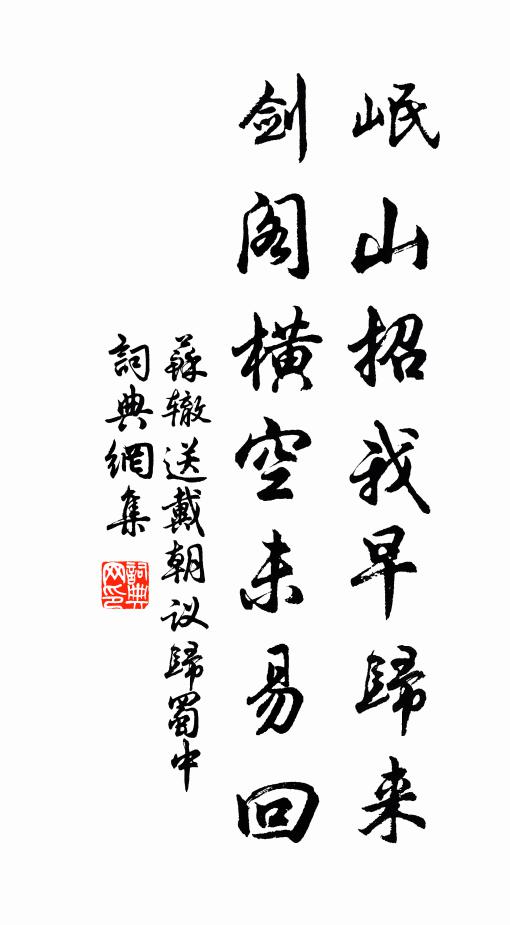 岷山招我早歸来
劍阁橫空未易回
蘇辙送戴朝议歸蜀中
詞典網集
詞典网印